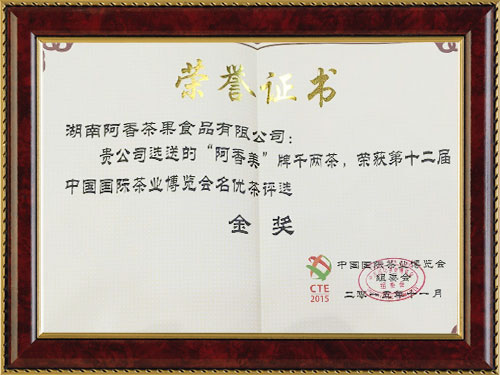 荣誉证书
湖南阿香茶果食品有限公司：
贵公司选送的“阿香美”牌千两茶，荣获第十二届
中国国际茶业博览会名优茶评选
金奖
CTE
2015
中国国际茶业博览会
组委会
二零一五年十一月